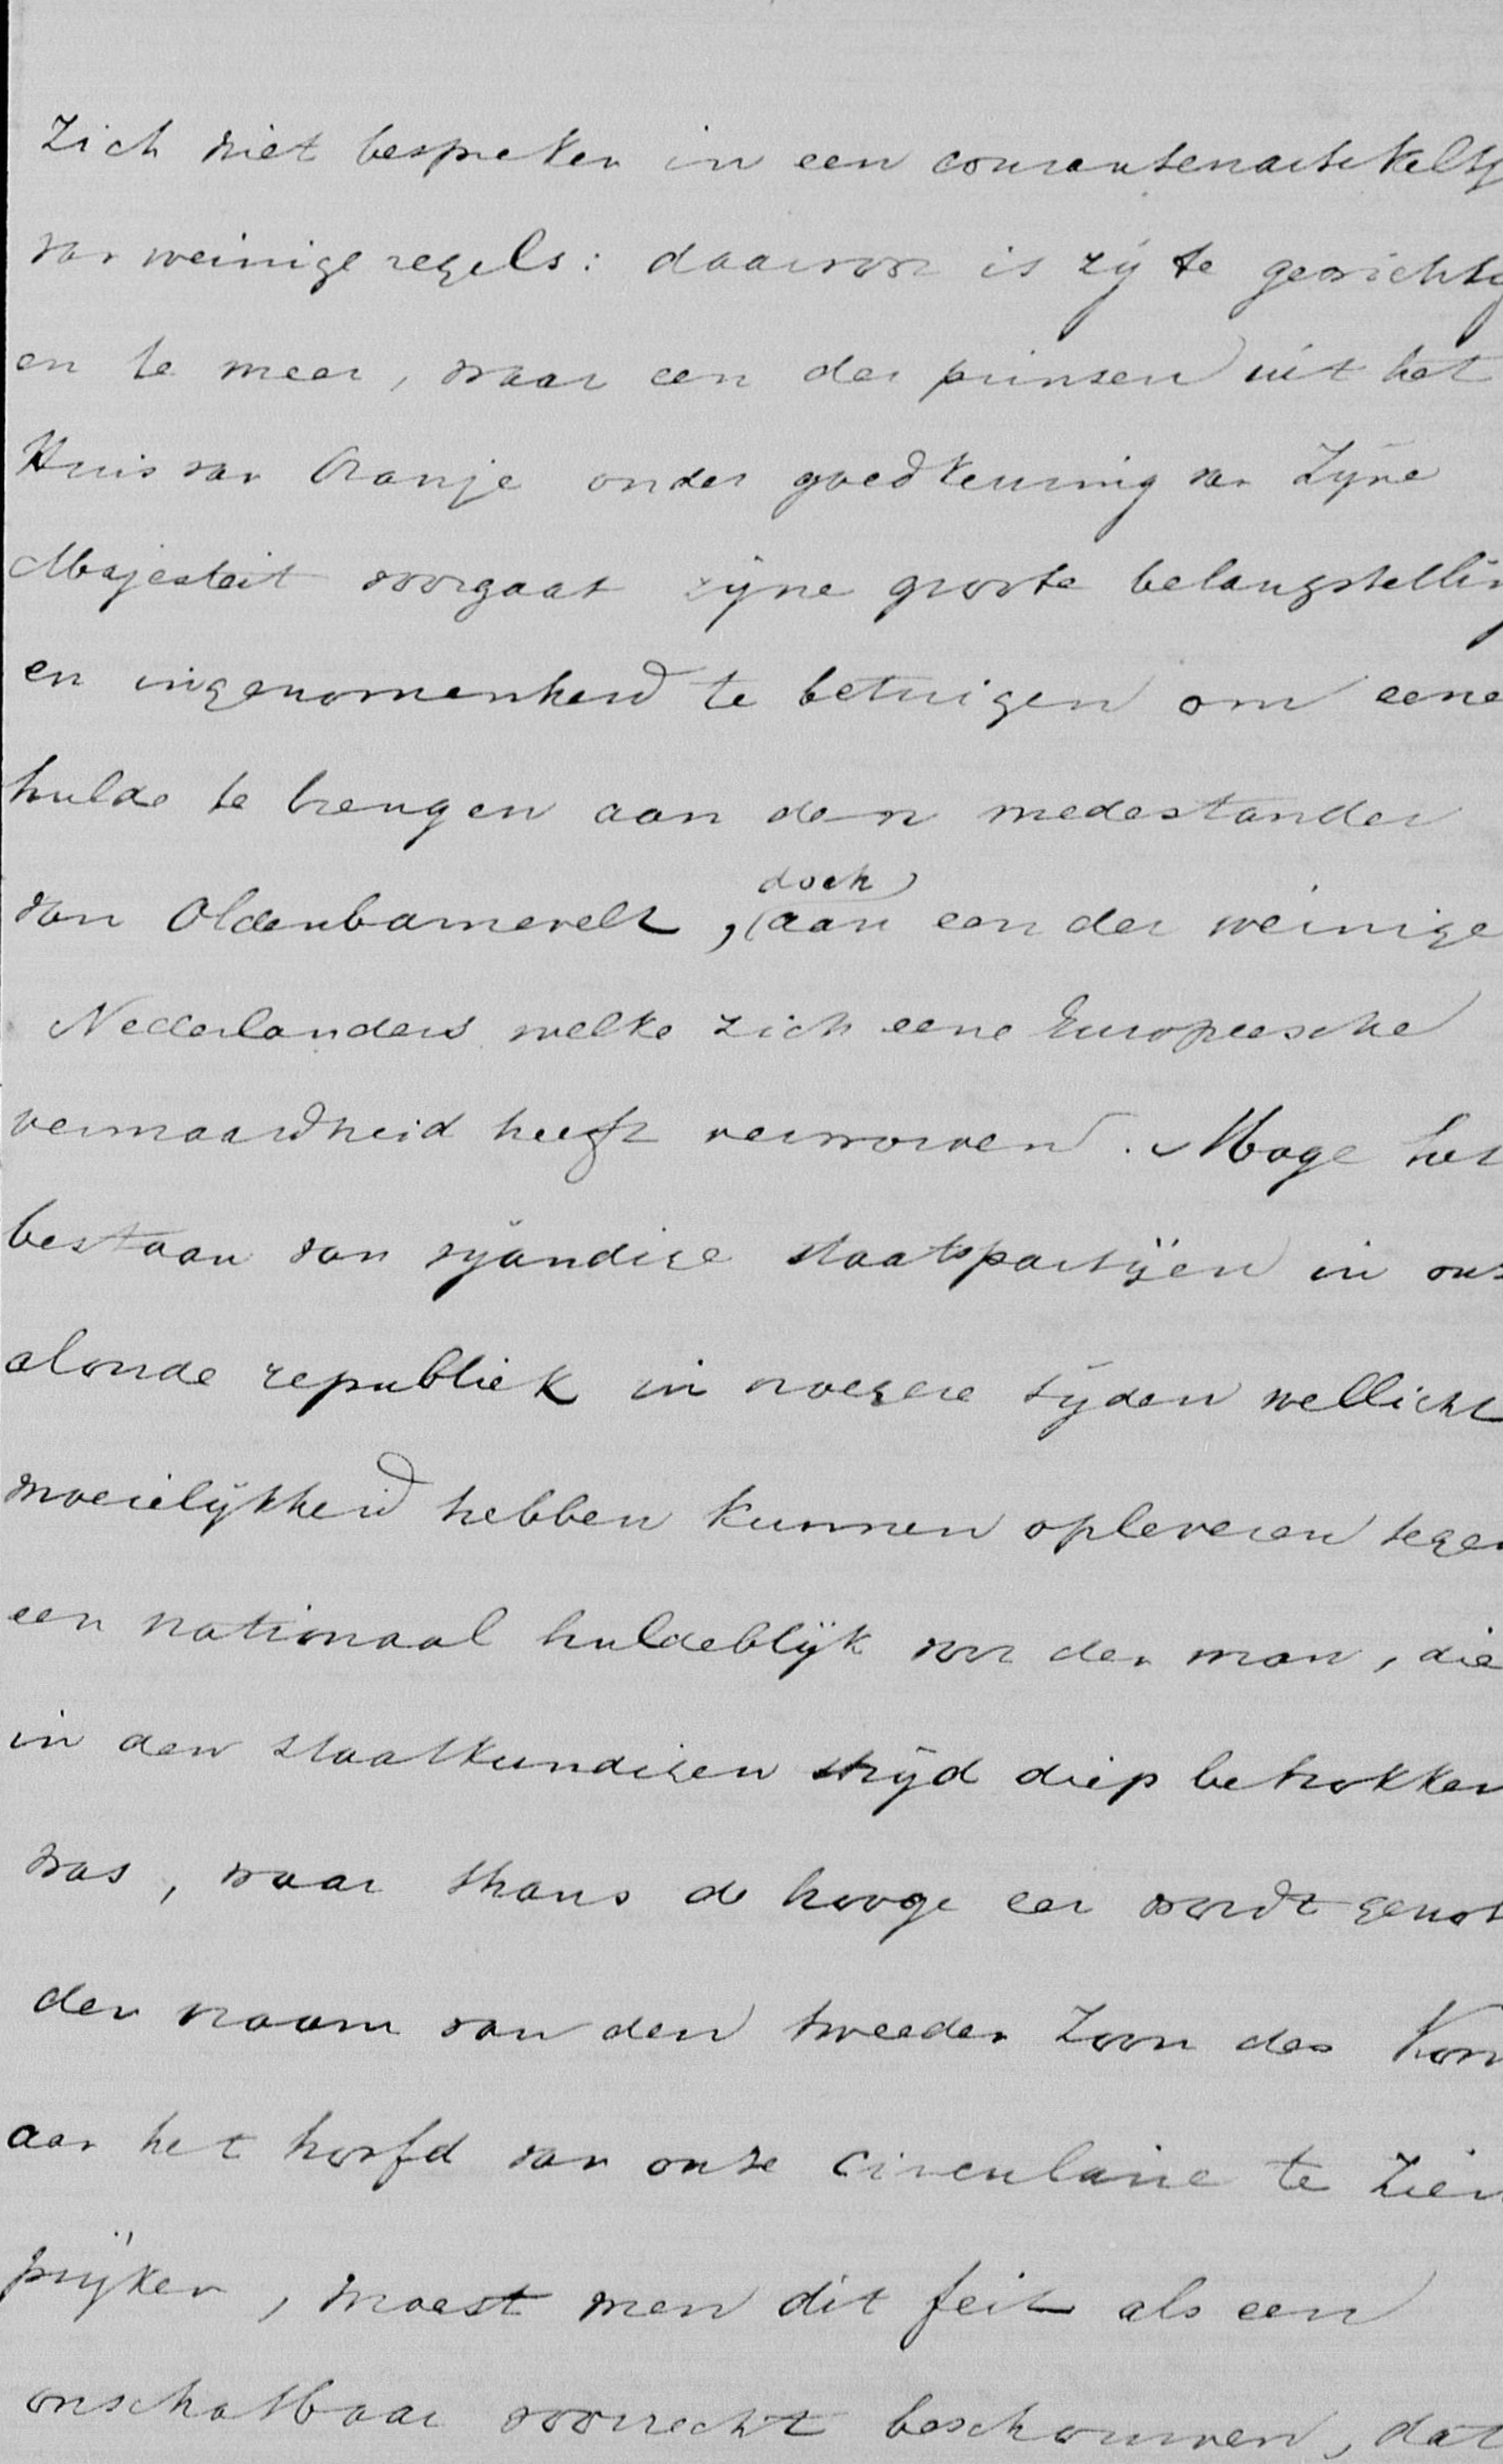 zich niet bespreken in een courantenartikeltj
van weinige regels: daarvoor is zij te gewichtig
en te meer, waar een der prinsen uit het
Huis van Oranje onder goedkeuring van Zijne
Majesteit voorgaat zijne groote belangstellin
en ingenomenheid te betuigen om eene
hulde te brengen aan den medestander
van Oldenbarnevelt, doch aan een der weinige
Nederlanders welke zich eene Europeesche
vermaardheid heeft verworven. Moge het
bestaan van vijandige staatspartijen in ons
aloude republiek in vroegere tijden wellicht
moeielijkheid hebben kunnen opleveren tegen
een nationaal huldeblijk voor den man, die
in den staatkundigen strijd diep betrokken
was, waar thans de hooge eer wordt genot
den naam van den tweeden zoon des Kon
aan het hoofd van onze circulaire te zien
prijken, moest men dit feit als een
onschatbaar voorrecht beschouwen, dat